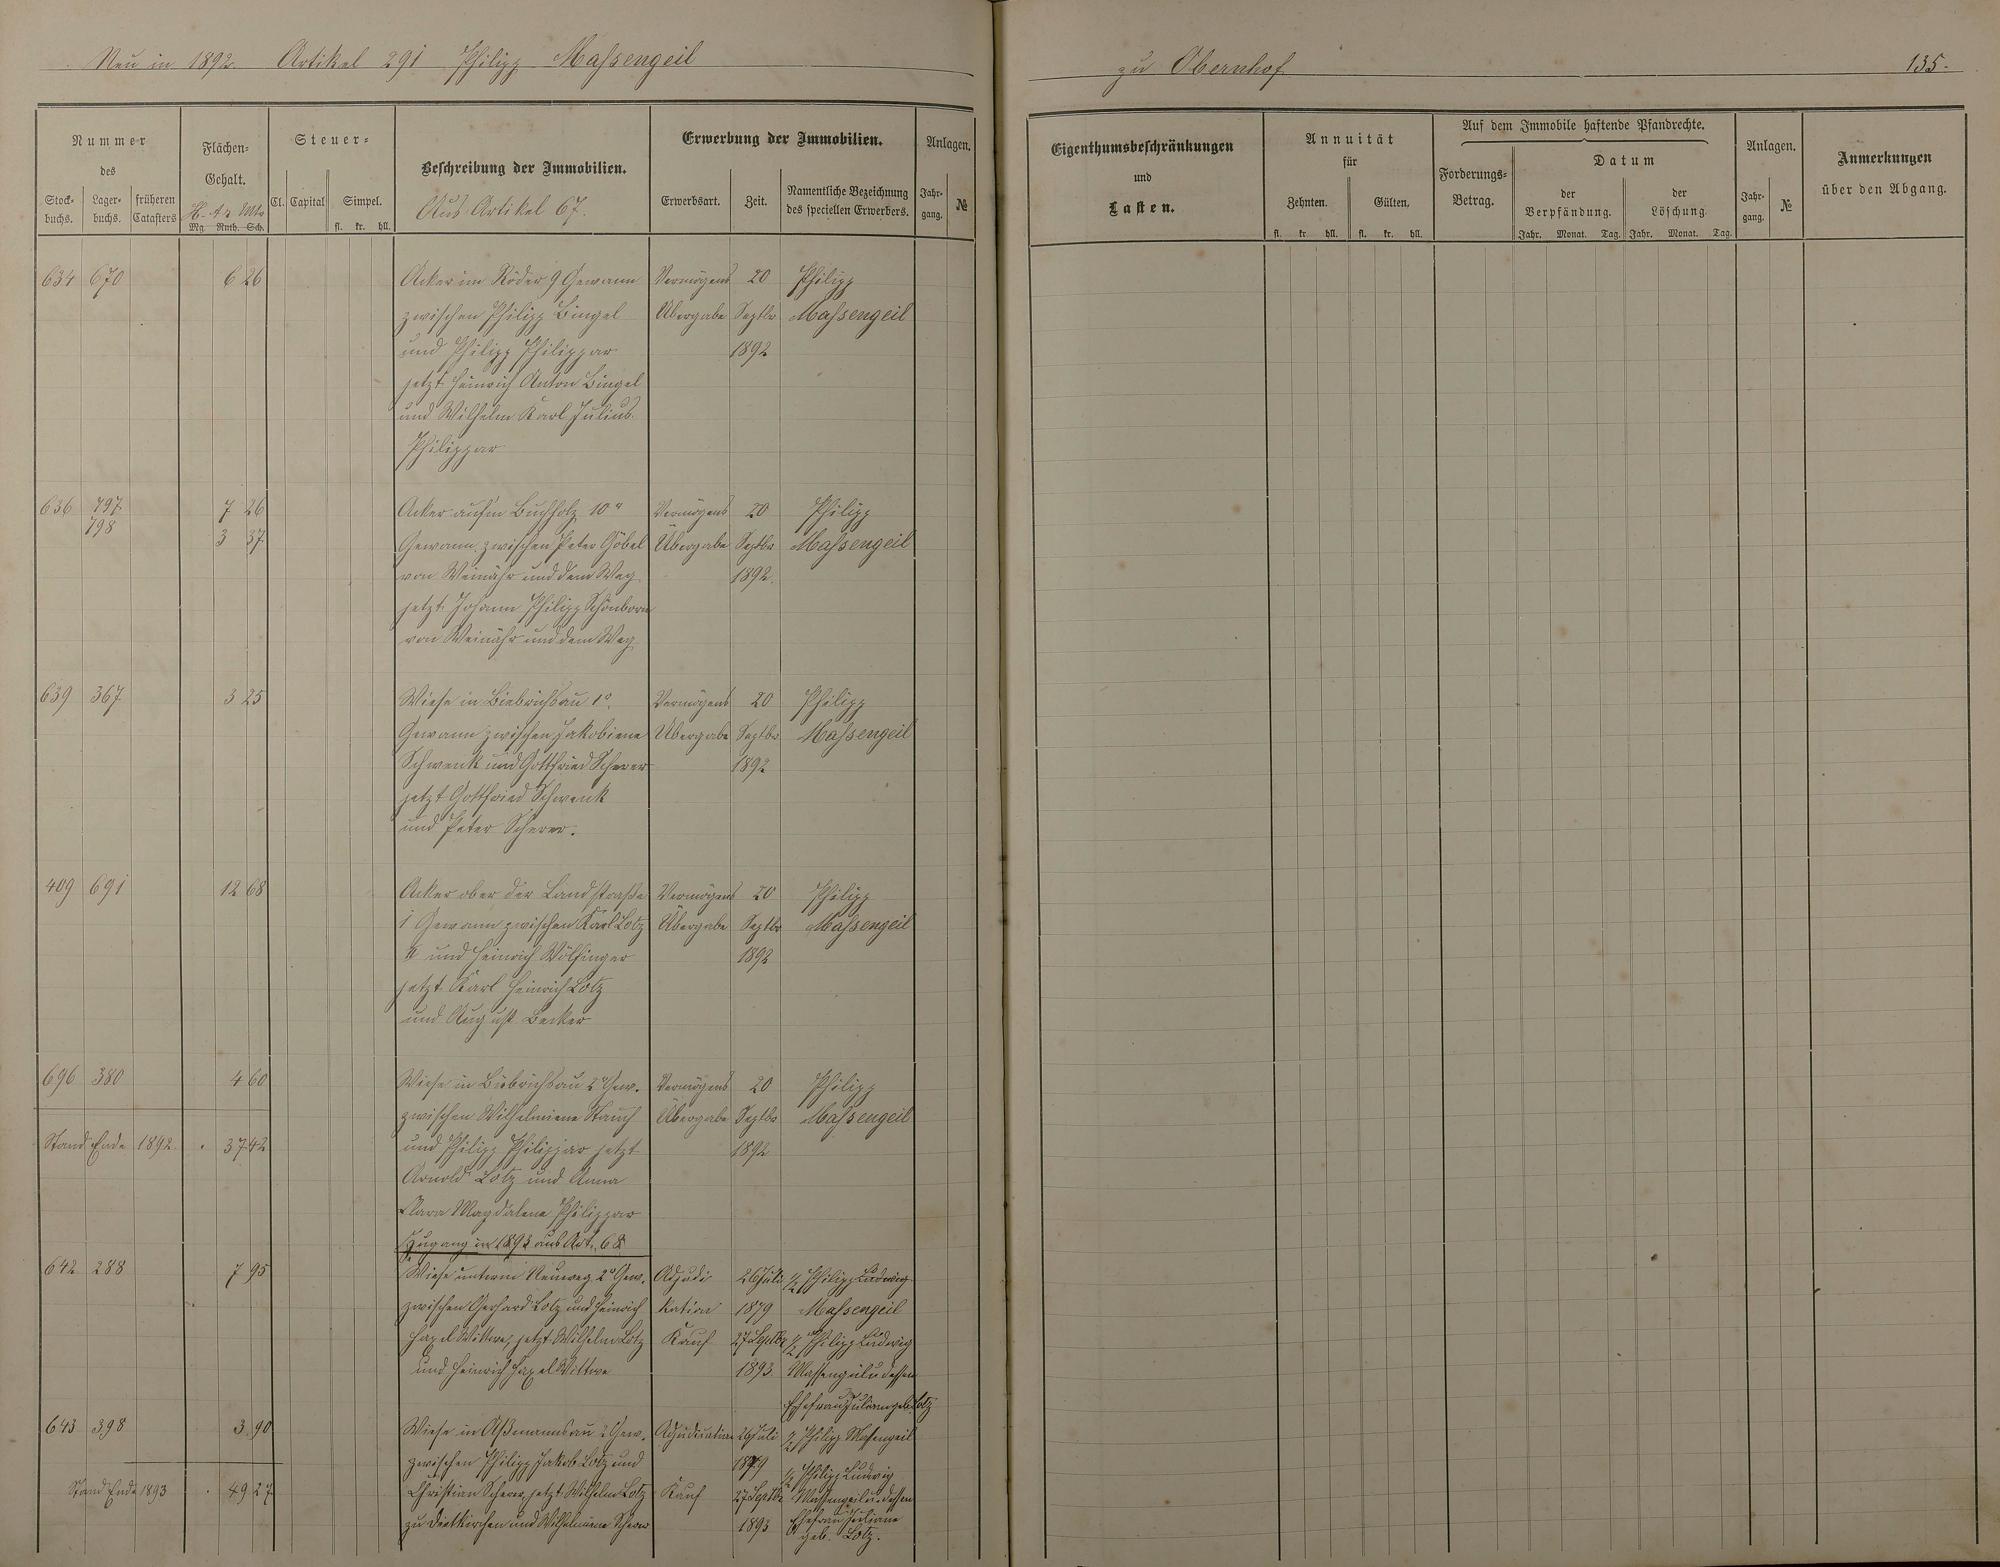 Neu in 1892. Artikel 291 Philipp Maßengeil
zu Obernhof
135.
Nummer
des
Stock-
buchs.
Lager-
buchs.
früheren
Catasters
Flächen-
Gehalt.
H. Ar Mtr
Mg. Ruth. Sch.
Steuer-
Cl. Capital Simpel.
fl. kr. hll.
Beschreibung der Immobilien.
Aus Artikel 67.
Erwerbung der Immobilien.
Erwerbsart. Zeit.
Namentliche Bezeichnung
des speciellen Erwerbers.
Anlagen.
Jahr-
gang.
№
Eigenthumsbeschränkungen
und
Lasten.
Annuität
für
Zehnten. Gülten.
fl. kr. hll. fl. kr. hll.
Auf dem Immobile haftende Pfandrechte.
Forderungs-
Betrag.
Datum
der
Verpfändung.
der
Löschung.
Jahr. Monat. Tag. Jahr. Monat. Tag.
Anlagen.
Jahr-
gang.
№
Anmerkungen
über den Abgang.
634 670 6 26 Acker im Röder 9 Gewann Vermögens 20 Philipp
zwischen Philipp Bingel Übergabe Septbr Maßengeil
und Philipp Philippar 1892
jetzt Heinrich Anton Bingel
und Wilhelm Karl Julius
Philippar
636 797 7 26 Acker aufm Buchholz 10" Vermögens 20 Philipp
798 3 37 Gewann zwischen Peter Göbel Übergabe Septbr Maßengeil
von Weinähr und dem Weg 1892.
jetzt Johann Philipp Schönborn
von Weinähr und dem Weg
639 367 3 25 Wiese in Biebrichsau 1r. Vermögens 20 Philipp
Gewann zwischen Jakobiene Übergabe Septbr Maßengeil
Schwenk und Gottfried Scherer 1892
jetzt Gottfried Schwenk
und Peter Scherer.
409 691 12 68 Acker ober der Landstraße Vermögens 20 Philipp
1 Gewann zwischen Karl Lotz Übergabe Septbr Maßengeil
und Heinrich Wölfinger 1892
jetzt Karl Heinrich Lotz
und August Becker
696 380 4 60 Wiese in Biebrichsau 2r Gew. Vermögens 20 Philipp
zwischen Wilhelmiene Stauch Übergabe Septbr Maßengeil
Stand Ende 1892. 37 42 und Philipp Philippar jetzt 1892
Arnold Lotz und Anna
Clara Magdalena Philippar
Zugang in 1893 aus Art. 68
642 288 7 95 Wiese unterm Neuweg 2r Gew. Adjudi 26 Juli ½ Philipp Ludwig
zwischen Gerhard Lotz und Heinrich kation 1879 Maßengeil
Wittwe, jetzt Wilhelm Lotz Kauf 27 Septbr ½ Philipp Ludwig
und Heinrich Wittwe 1893. Massengeil u dessen
Ehefrau Juliane geb. Lotz
643 398 3 90 Wiese in Aßmannsau 2 Gew. Adjudication 26 Juli ½ Philipp Massengeil
zwischen Philipp Jakob Lotz und 1879 ½ Philipp Ludwig
Stand Ende 1893 . 49 27 Christian Scherer, jetzt Wilhelm Lotz Kauf 27 Septbr Massengeil u. dessen
zu Dietkirchen und Wilhelmiene Scherer 1893 Ehefrau Juliane
geb. Lotz.